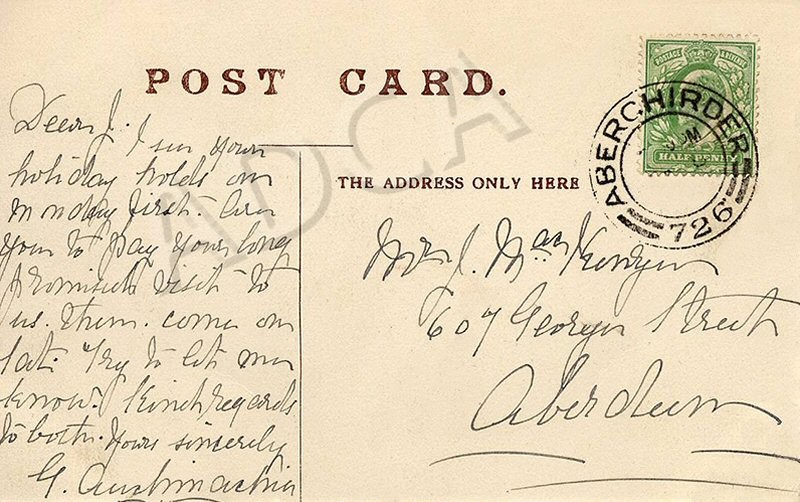 POST CARD.
POSTAGE & REVENUE
HALF PENNY
ABERCHIRDER
726
THE ADDRESS ONLY HERE
Dear J. I see your
holiday holds on
Monday first. Are
you to pay your long
promised visit to
us then. come on
Sat. Try to let me
know. Kind regards
to both. Yours sincerely
G.
Mr J. MacKenzie
607 George Street
Aberdeen
ADCA